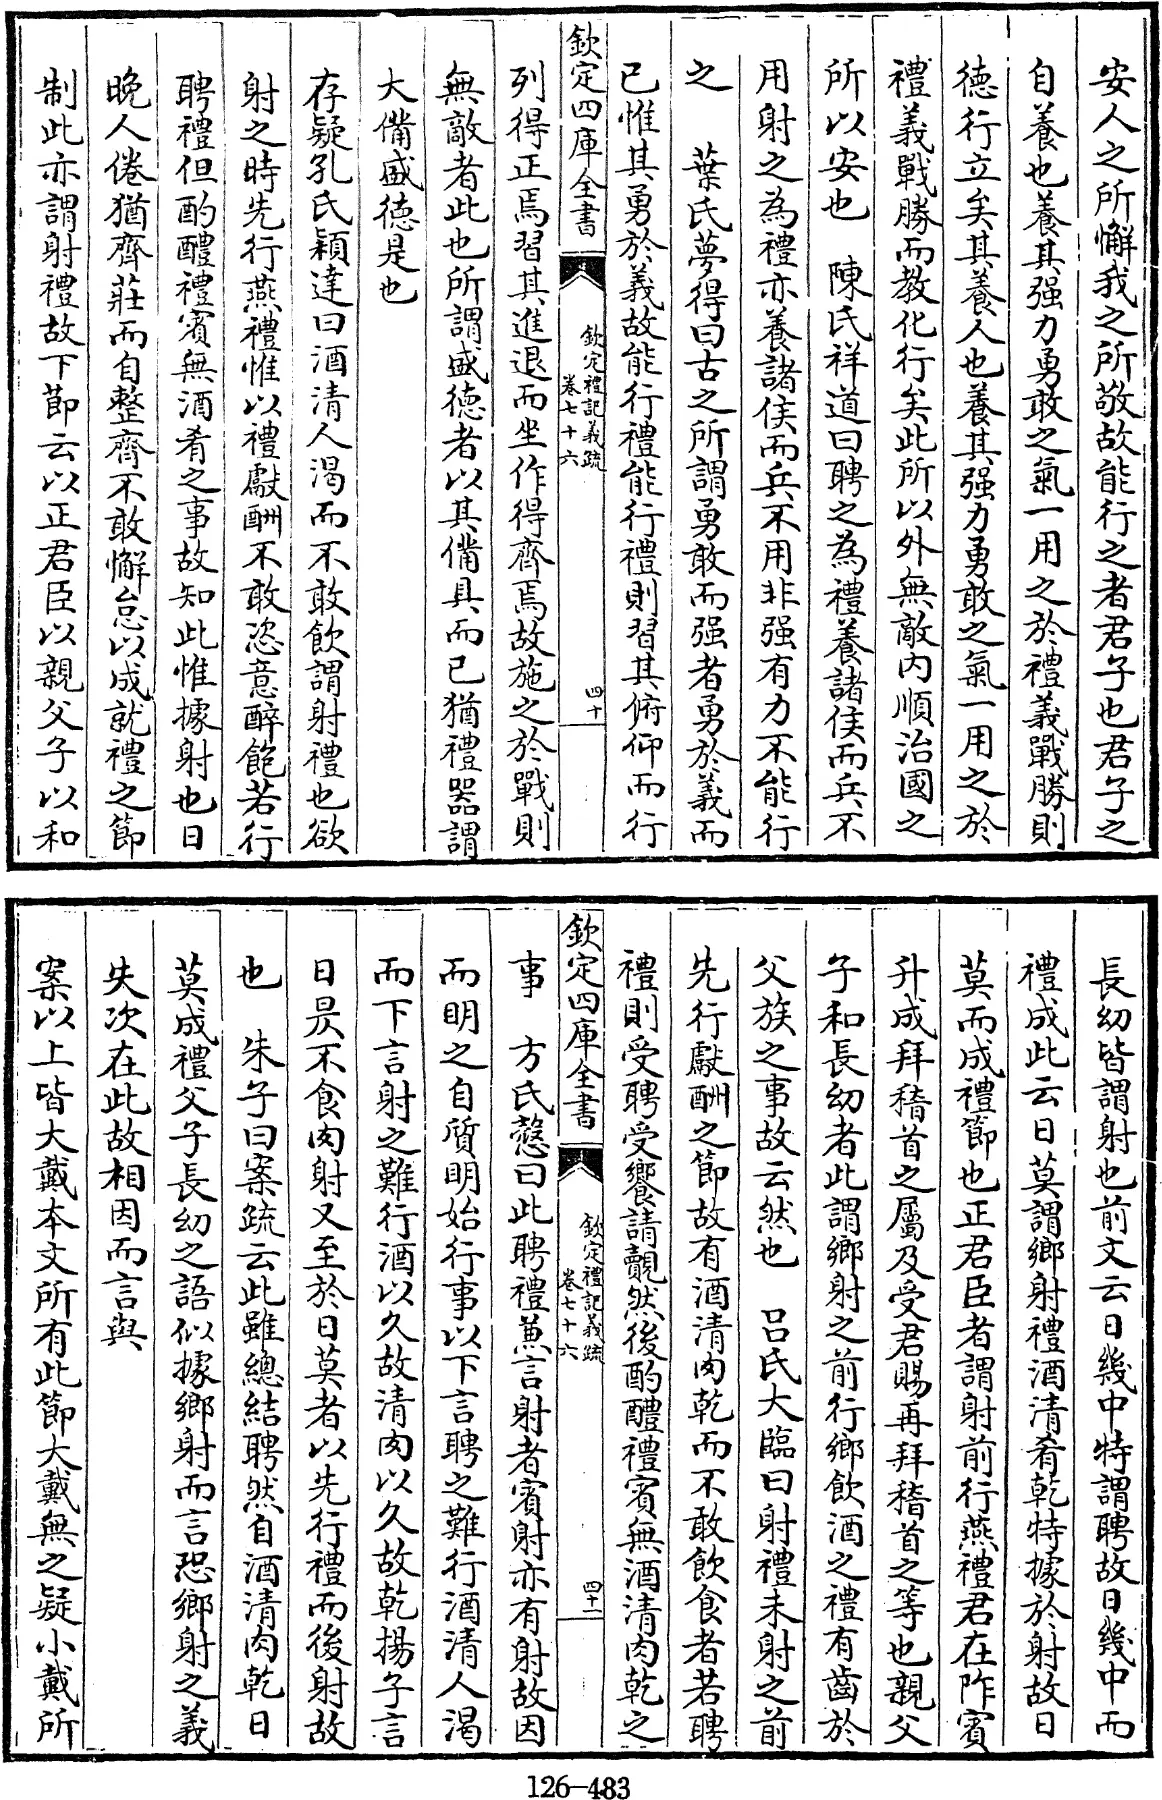 安人之所懈我之所敬故能行之者君子也君子之
自養也養其强力勇敢之氣一用之於禮義戰勝則
德行立矣其養人也養其强力勇敢之氣一用之於
禮義戰勝而教化行矣此所以外無敵内順治國之
所以安也　陳氏祥道曰聘之為禮養諸侯而兵不
用射之為禮亦養諸侯而兵不用非强有力不能行
之　葉氏夢得曰古之所謂勇敢而强者勇於義而
已惟其勇於義故能行禮能行禮則習其俯仰而行
欽定四庫全書　欽定禮記義疏　卷七十六　四十
列得正焉習其進退而坐作得齊焉故施之於戰則
無敵者此也所謂盛德者以其備具而已猶禮器謂
大備盛德是也
存疑孔氏穎達曰酒清人渴而不敢飲謂射禮也欲
射之時先行燕禮惟以禮獻酬不敢恣意醉飽若行
聘禮但酌醴禮賓無酒肴之事故知此惟據射也日
晚人倦猶齊莊而自整齊不敢懈怠以成就禮之節
制此亦謂射禮故下節云以正君臣以親父子以和
長幼皆謂射也前文云日幾中特謂聘故日幾中而
禮成此云日莫謂鄉射禮酒清肴乾特據於射故日
莫而成禮節也正君臣者謂射前行燕禮君在阼賓
升成拜稽首之屬及受君賜再拜稽首之等也親父
子和長幼者此謂鄉射之前行鄉飲酒之禮有齒於
父族之事故云然也　吕氏大臨曰射禮未射之前
先行獻酬之節故有酒清肉乾而不敢飲食者若聘
禮則受聘受饗請覿然後酌醴禮賓無酒清肉乾之
欽定四庫全書　欽定禮記義疏　卷七十六　四十一
事　方氏慤曰此聘禮兼言射者賓射亦有射故因
而明之自質明始行事以下言聘之難行酒清人渴
而下言射之難行酒以久故清肉以久故乾揚子言
日昃不食肉射又至於日莫者以先行禮而後射故
也　朱子曰案疏云此雖總結聘然自酒清肉乾日
莫成禮父子長幼之語似據鄉射而言恐鄉射之義
失次在此故相因而言與
案以上皆大戴本文所有此節大戴無之疑小戴所
126-483